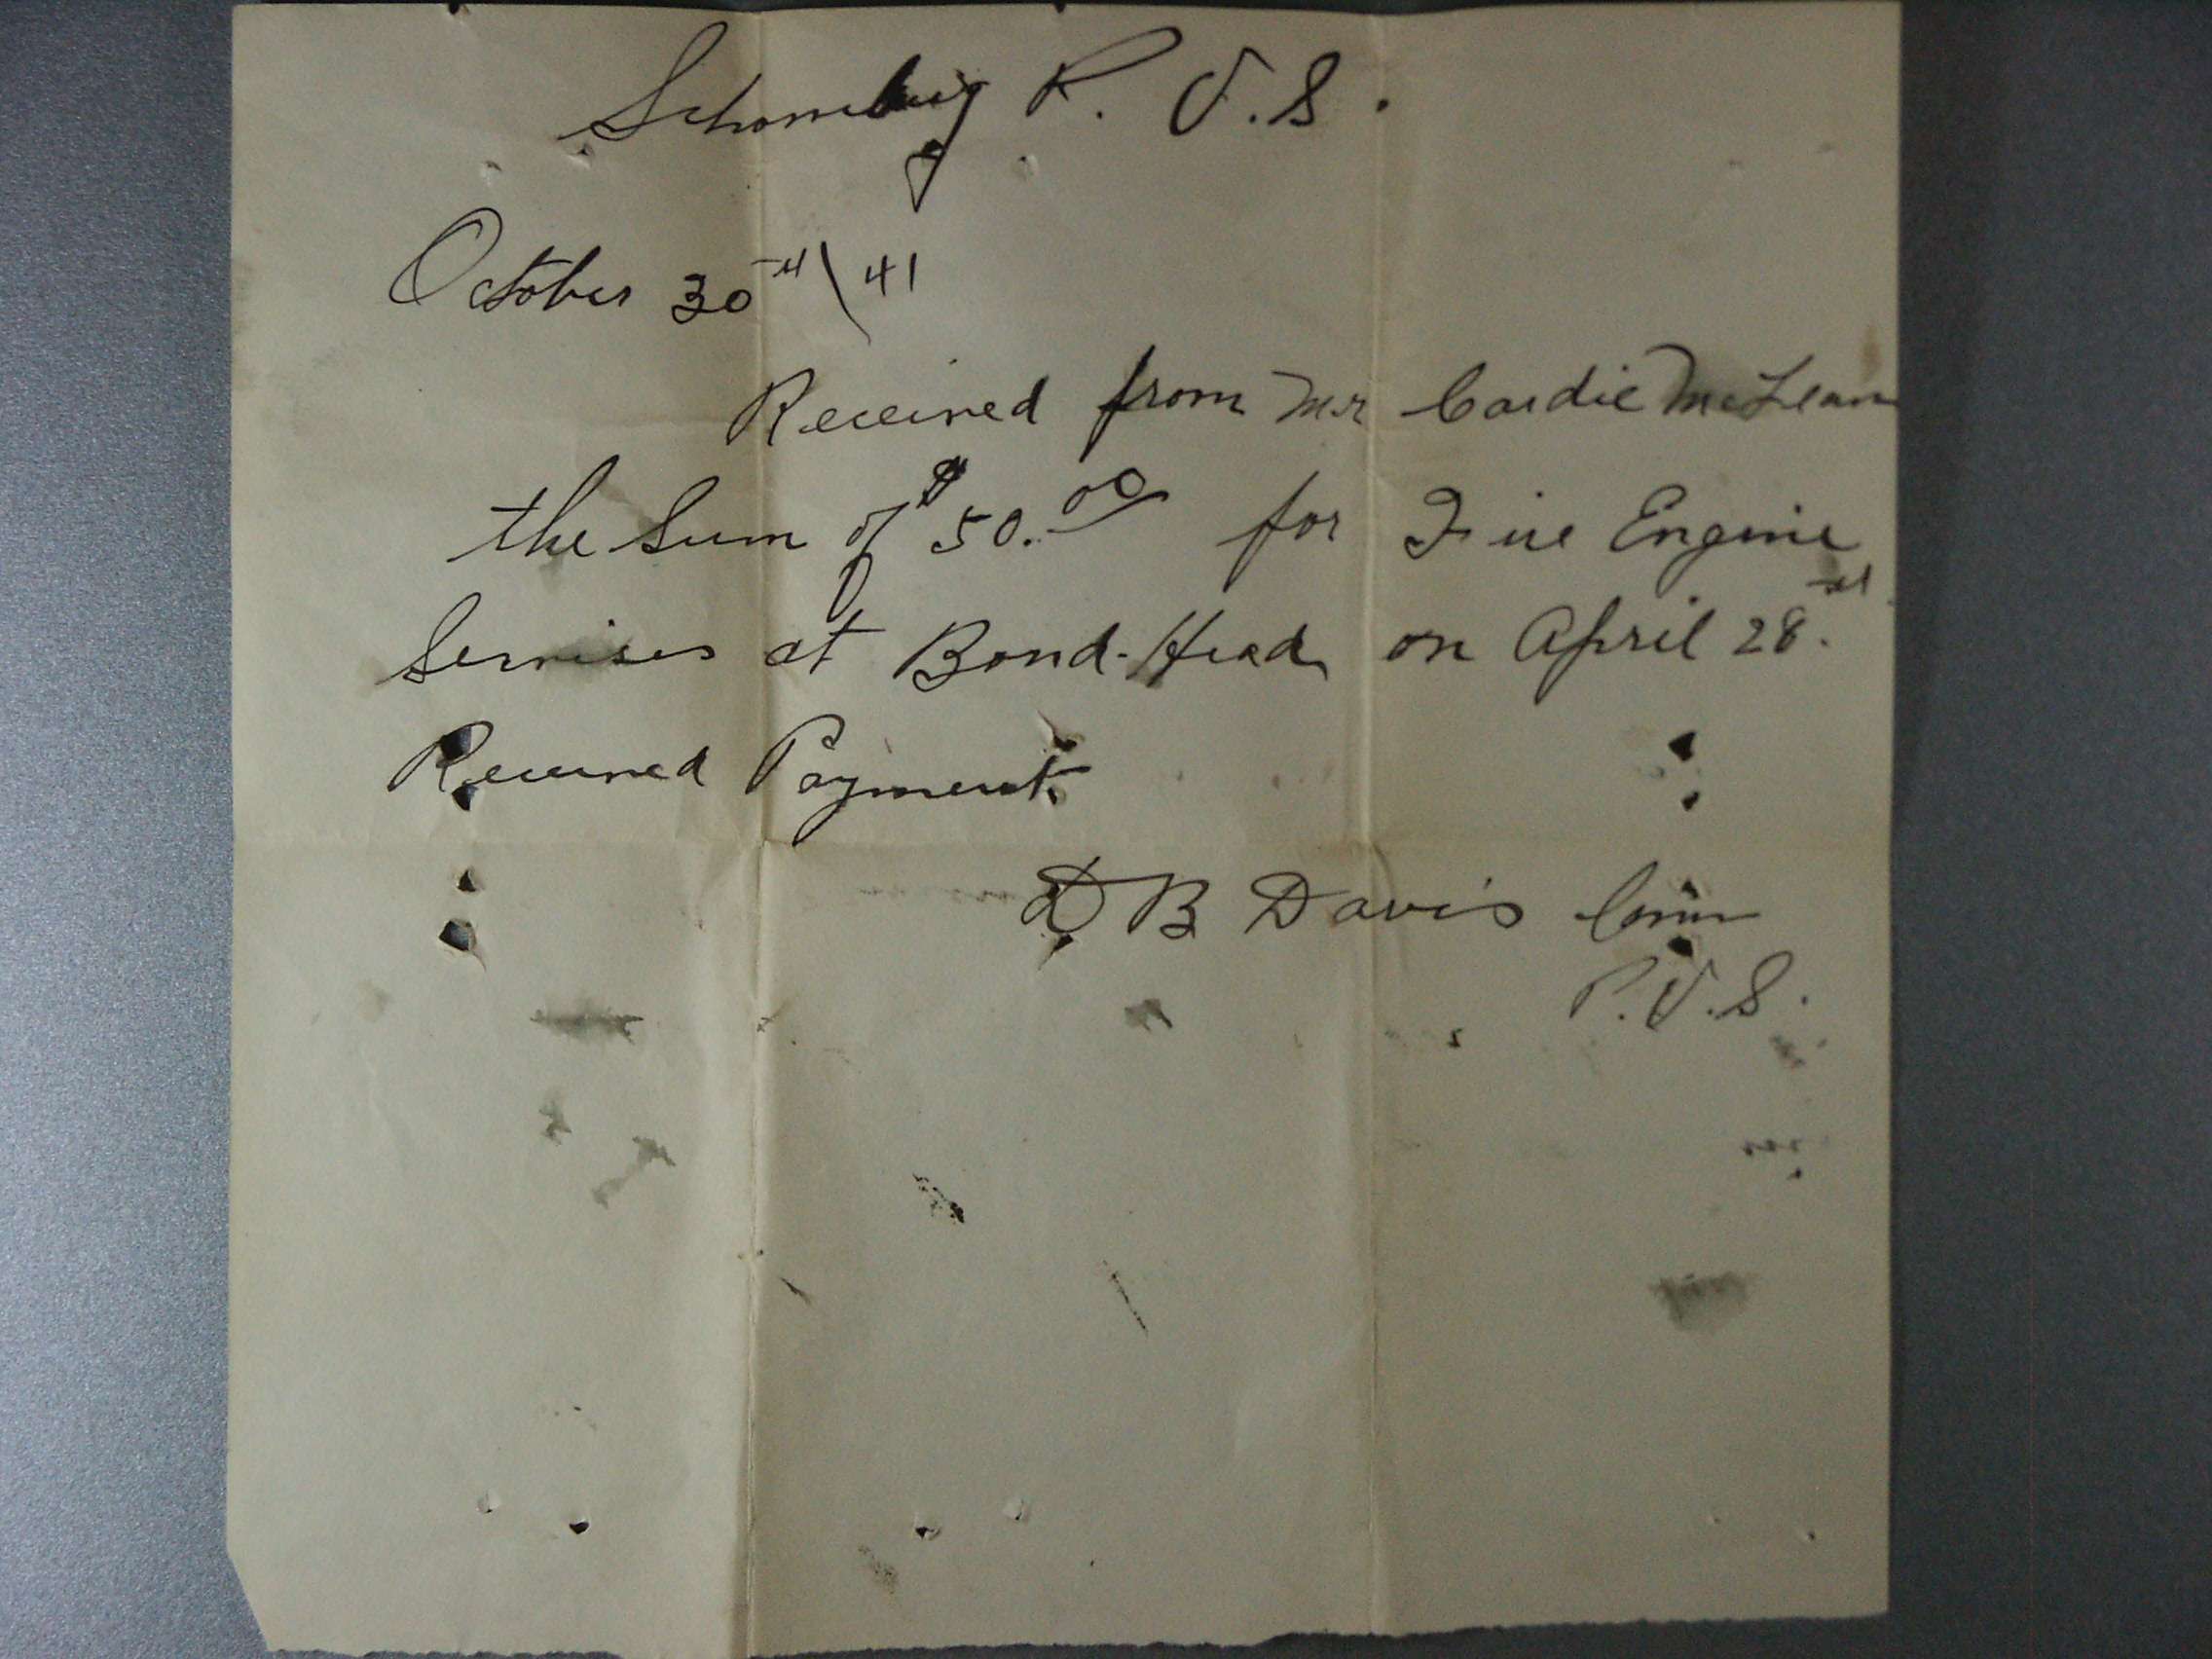 Schomberg P. V. S.
October 30th \ 41
Received from Mr Cardie McLean
the Sum of $50.00 for Fire Engine
Servises at Bond-Head on April 28th.
Received Payment
D B Davis Comm
P. V. S.